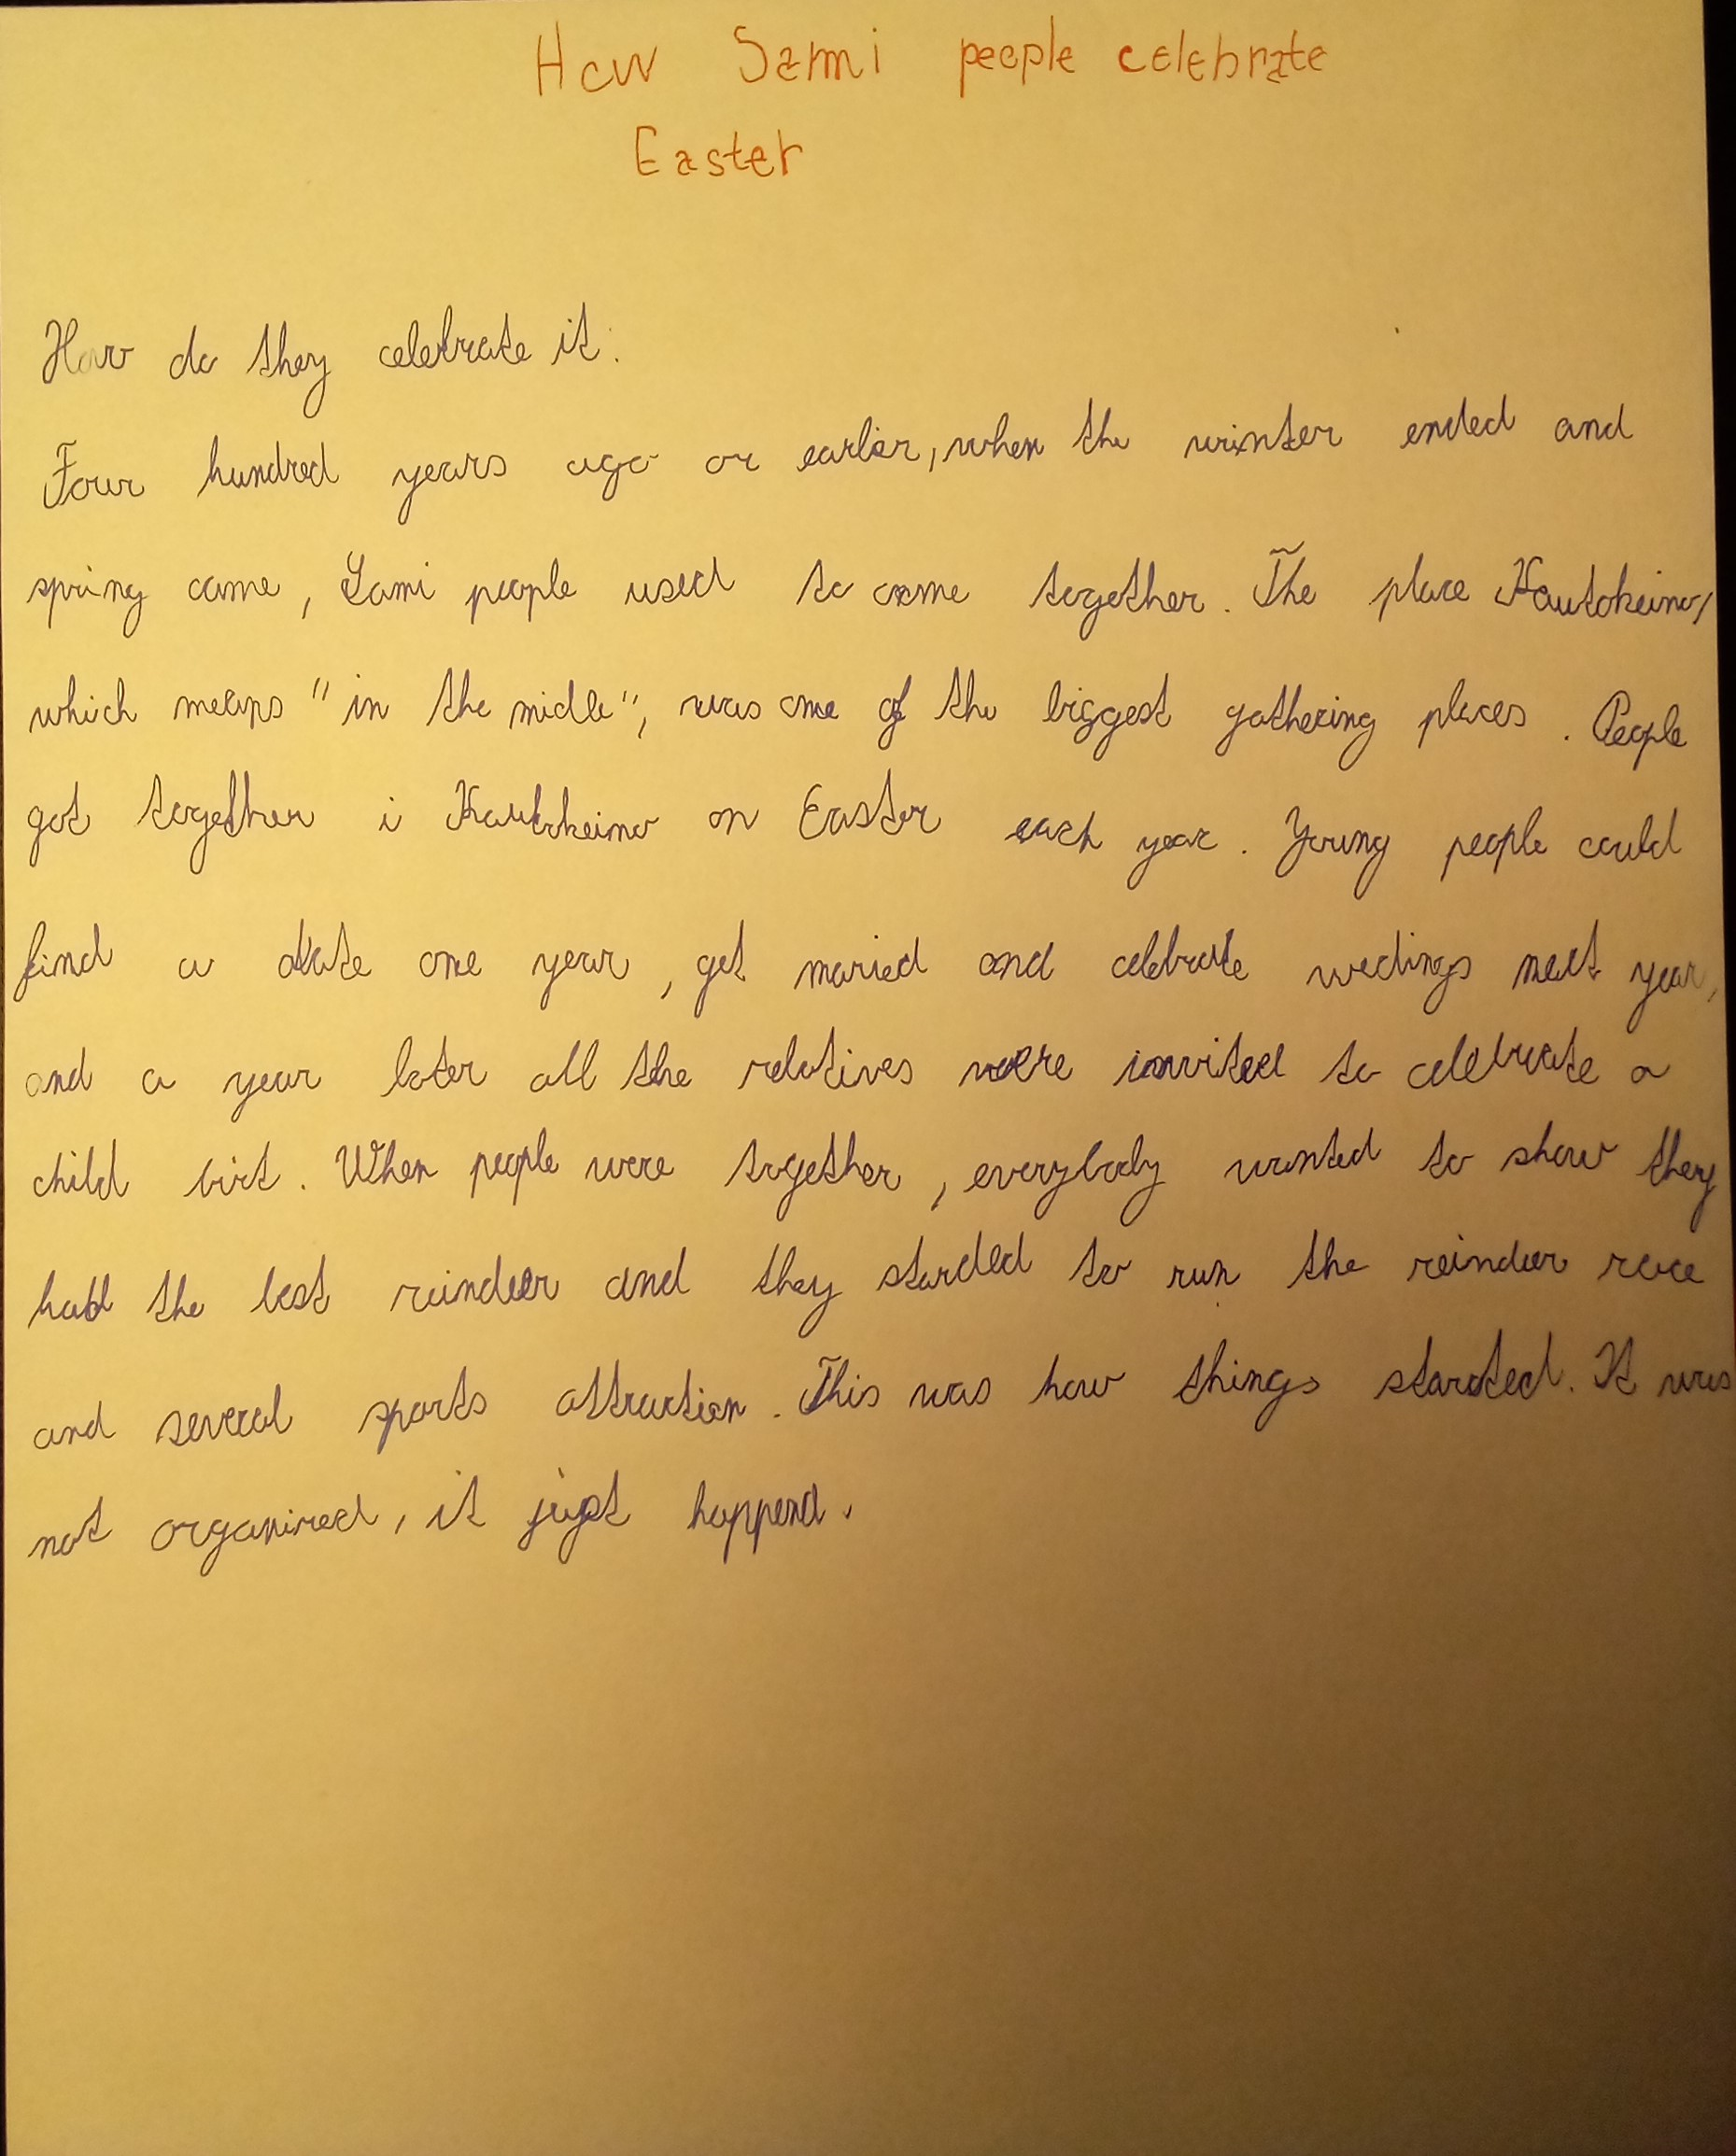 How Sami people celebrate
Easter
How do they celebrate it:
Four hundred years ago or earlier, when the winter ended and
spring came, Sami people used to come together. The place Kautokeino,
which means "in the midle", was one of the biggest gathering places. People
got together i Kautokeino on Easter each year. Young people could
find a date one year, get maried and celebrate wedings next year,
and a year later all the relatives were invited to celebrate a
child birt. When people were together, everybody wanted to show they
had the best reindeer and they starded to run the reindeer race
and several sports attraction. This was how things started. It was
not organized, it just happend.